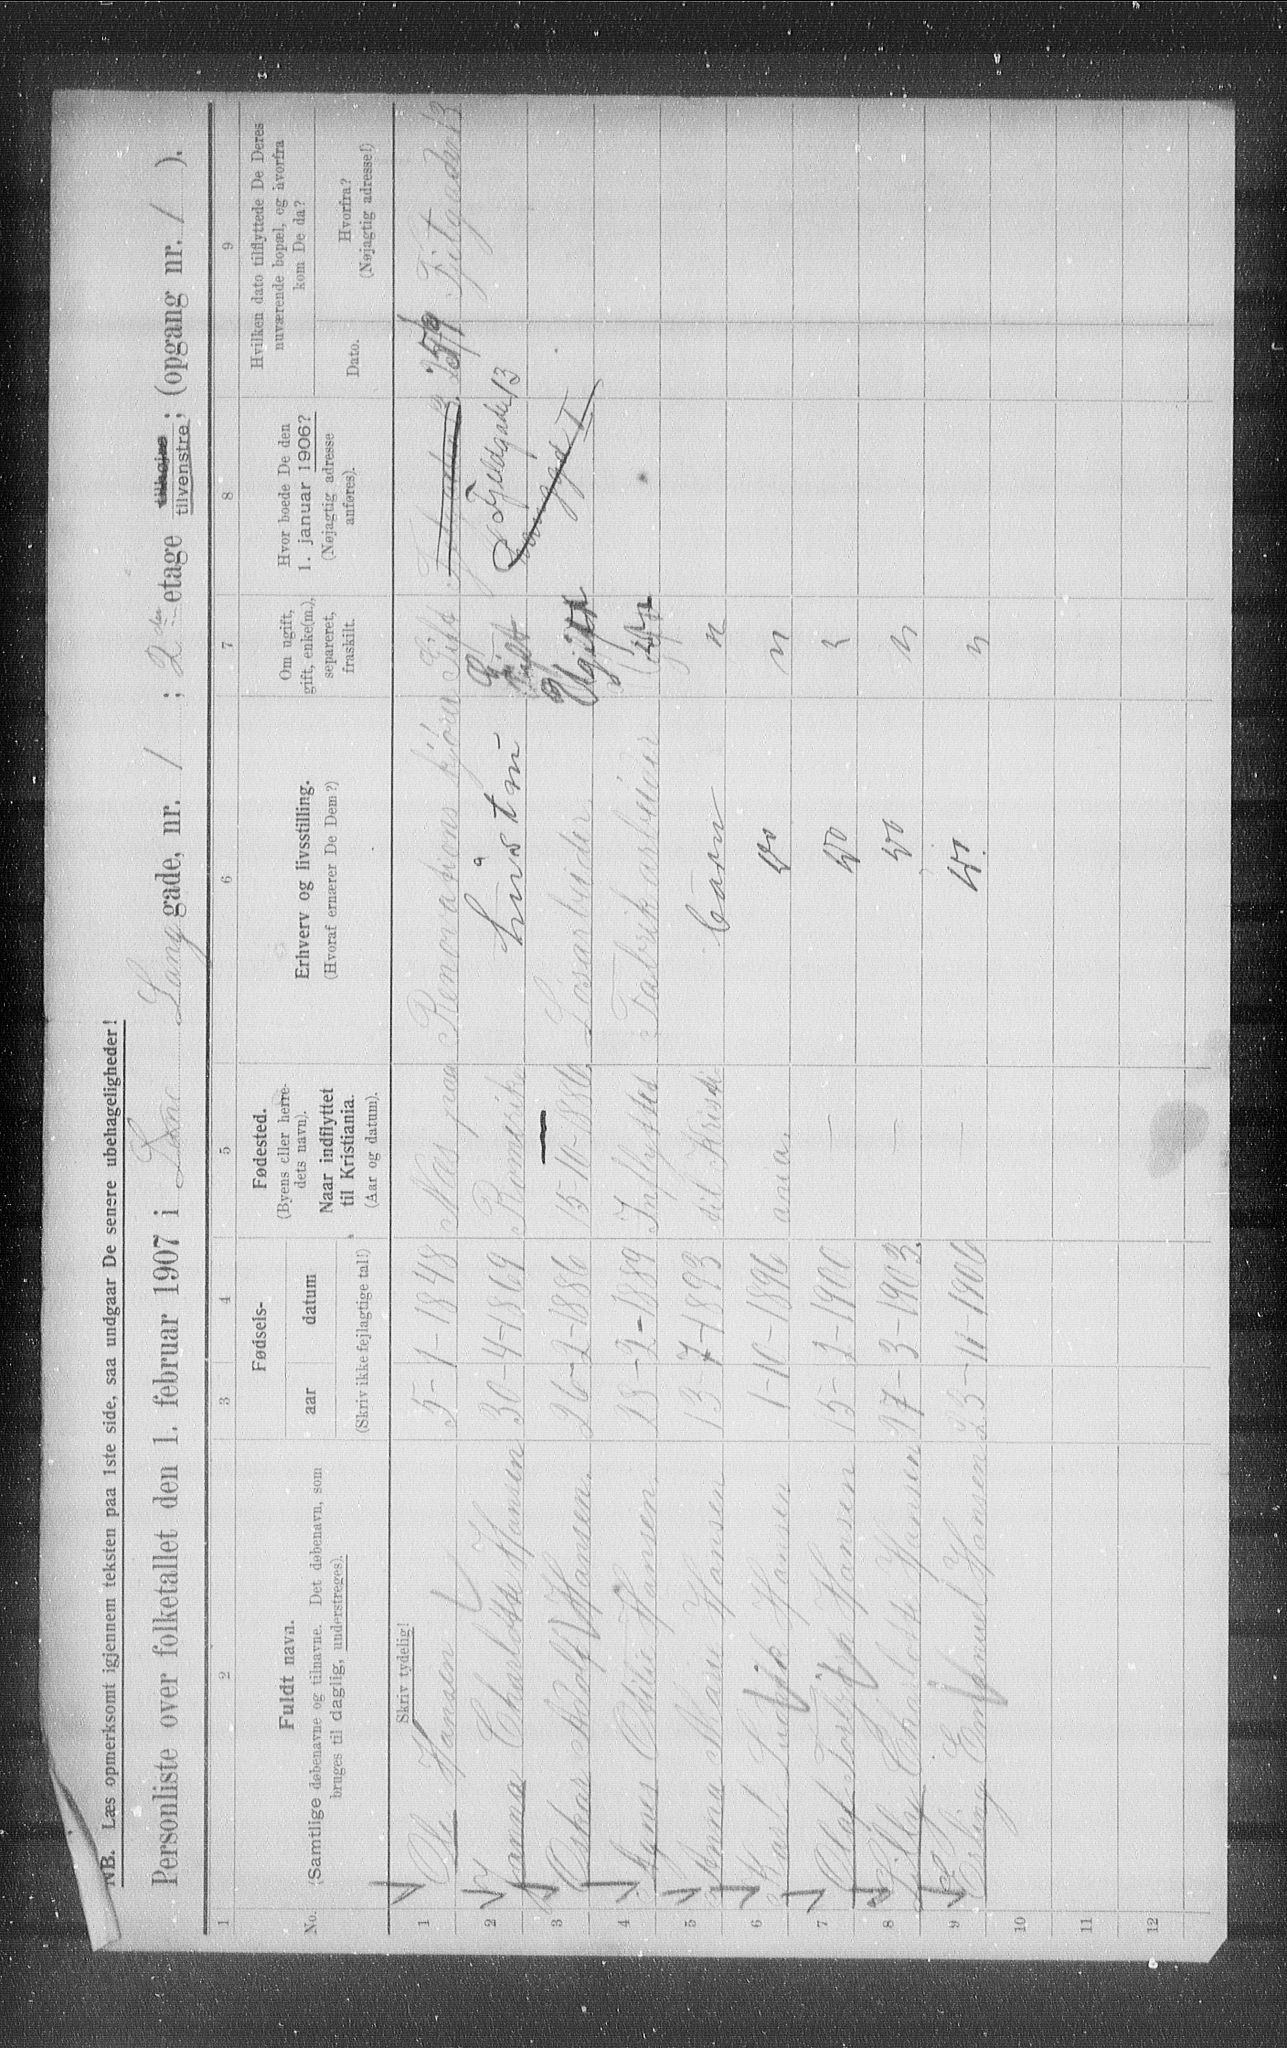 NB. Læs opmerksomt igjennem teksten paa 1ste side, saa undgaar De senere ubehageligheder!
Personliste over folketallet den 1. februar 1907 i Lang gade, nr. 1 ; 2den etage tilhøjre tilvenstre; (opgang nr. 1 ).
1 2 3 4 5 6 7 8 9
No.
Fuldt navn.
(Samtlige døbenavne og tilnavne. Det døbenavn, som
bruges til daglig, understreges).
Fødsels-
aar datum
(Skriv ikke fejlagtige tal!)
Fødested.
(Byens eller herre-
dets navn).
Naar indflyttet
til Kristiania.
(Aar og datum).
Erhverv og livsstilling.
(Hvoraf ernærer De Dem?)
Om ugift,
gift, enke(m.),
separeret,
fraskilt.
Hvor boede De den
1. januar 1906?
(Nøjagtig adresse
anføres).
Hvilken dato tilflyttede De Deres
nuværende bopæl, og hvorfra
kom De da?
Dato.
Hvorfra?
(Nøjagtig adresse!)
Skriv tydelig!
1 Ole Hansen 5-1-1848 Næs paa Renovations kjører Gift Fjelgaden 13
2 Hanna Charlotte Hansen 30-4-1869 Romerike Hustru Gift Fjeldgaden 13
3 Oskar Adolf Hansen. 26-2-1886 15-10-1886 Løsarbeider. Ugift
4 Agnes Otilie Hansen. 18-2-1889 Inflyttet Fabrikarbeider
5 Anna Marie Hansen 13-7-1893 til Kristi Barn
6 Karl Ludvik Hansen 1-10-1896 ania. do
7 Olaf Hansen 15-2-1900 — do
8 Charlotte Hansen 27-3-1903. — do
9 Erling Emanuel Hansen 23-11-1906 — do.
10
11
12